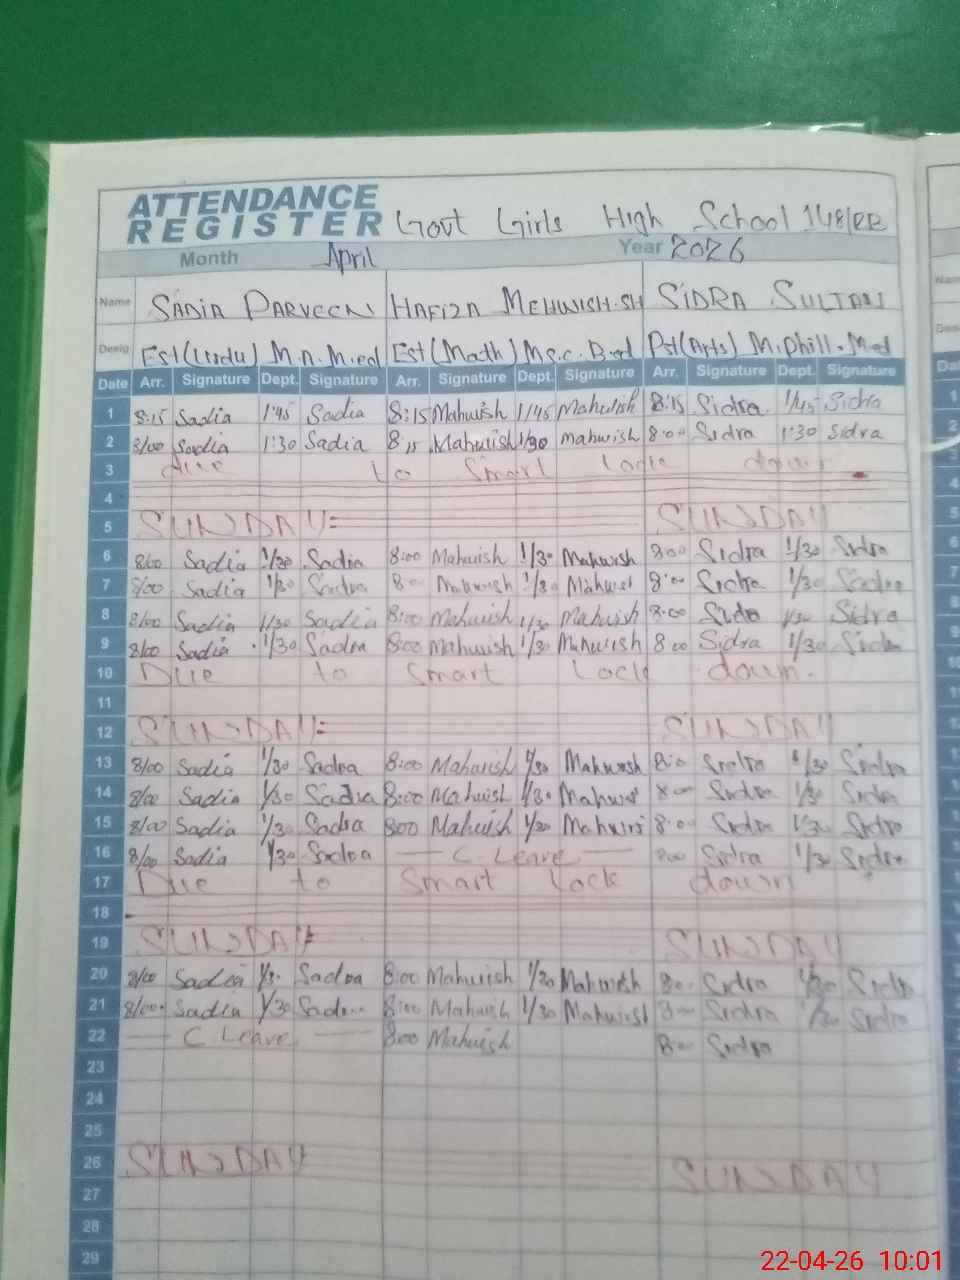 ATTENDANCE
REGISTER Govt Girls High School 148/EB
Month April Year 2026
Name SADIA PARVEEN HAFIZA MEHWISH.SH SIDRA SULTAN
Desig Est(Urdu) M.A.M.ed Est(Math) M.S.c. B.ed Pst(Arts) M.Phill.M.ed
Date Arr. Signature Dept. Signature Arr. Signature Dept. Signature Arr. Signature Dept. Signature
1 8:15 Sadia 1:45 Sadia 8:15 Mahwish 1/45 Mahwish 8:15 Sidra 1/45 Sidra
2 8/00 Sadia 1:30 Sadia 8:15 Mahwish 1/30 mahwish 8:00 Sidra 1:30 Sidra
3 due to Smart down
4
5 SUNDAY SUNDAY
6 8/00 Sadia 1/30 Sadia 8:00 Mahwish 1/30 Mahwish 8:00 Sidra 1/30 Sidra
7 8/00 Sadia 1/30 Sadia 8:00 Mahwish 1/30 Mahwish 8:00 Sidra 1/30 Sidra
8 8/00 Sadia 1/30 Sadia 8:00 Mahwish 1/30 Mahwish 8:00 Sidra 1/30 Sidra
9 8/00 Sadia 1/30 Sadia 8:00 Mahwish 1/30 Mahwish 8:00 Sidra 1/30 Sidra
10 Due to Smart Lock down.
11
12 SUNDAY SUNDAY
13 8/00 Sadia 1/30 Sadia 8:00 Mahwish 1/30 Mahwish 8:0 Sidra 1/30 Sidra
14 8/00 Sadia 1/30 Sadia 8:00 Mahwish 1/30 Mahwish 8:00 Sidra 1/30 Sidra
15 8/00 Sadia 1/30 Sadia 8:00 Mahwish 1/30 Mahwish 8:00 Sidra 1/30 Sidra
16 8/00 Sadia 1/30 Sadia C. Leave 8:00 Sidra 1/30 Sidra
17 Due to Smart Lock down
18
19 SUNDAY SUNDAY
20 8/00 Sadia 1/30 Sadia 8:00 Mahwish 1/30 Mahwish 8:00 Sidra 1/30 Sidra
21 8/00 Sadia 1/30 Sadia 8:00 Mahwish 1/30 Mahwish 8:00 Sidra 1/30 Sidra
22 C Leave 8:00 Mahwish 8:00 Sidra
23
24
25
26 SUNDAY SUNDAY
27
28
29
22-04-26 10:01